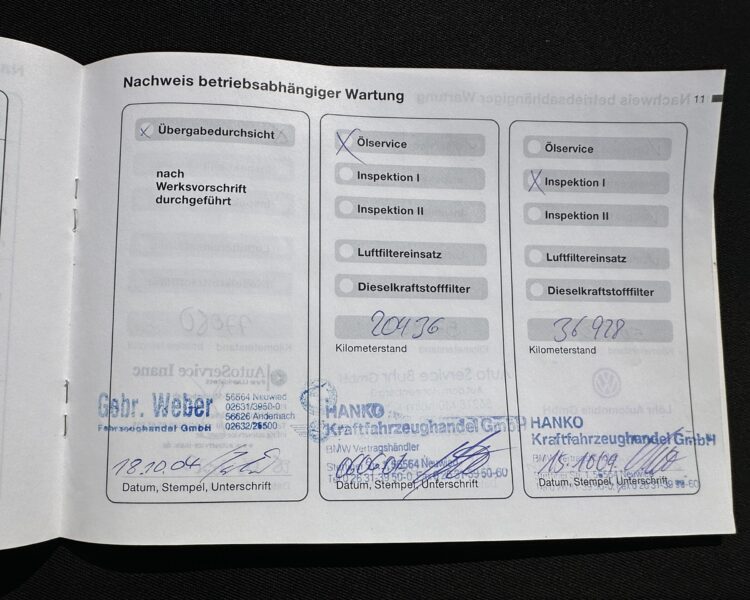 Nachweis betriebsabhängiger Wartung
11
Übergabedurchsicht
nach
Werksvorschrift
durchgeführt
Gebr. Weber
Fahrzeughandel GmbH
56564 Neuwied
02631/3950-0
56626 Andernach
02632/25500
18.10.04
Datum, Stempel, Unterschrift
Ölservice
Inspektion I
Inspektion II
Luftfiltereinsatz
Dieselkraftstofffilter
20436
Kilometerstand
HANKO
Kraftfahrzeughandel GmbH
BMW Vertragshändler
56564 Neuwied
Tel. 0 26 31-39 50-0, 39 50-60
Datum, Stempel, Unterschrift
Ölservice
Inspektion I
Inspektion II
Luftfiltereinsatz
Dieselkraftstofffilter
36928
Kilometerstand
HANKO
Kraftfahrzeughandel GmbH
15.1009
Datum, Stempel, Unterschrift